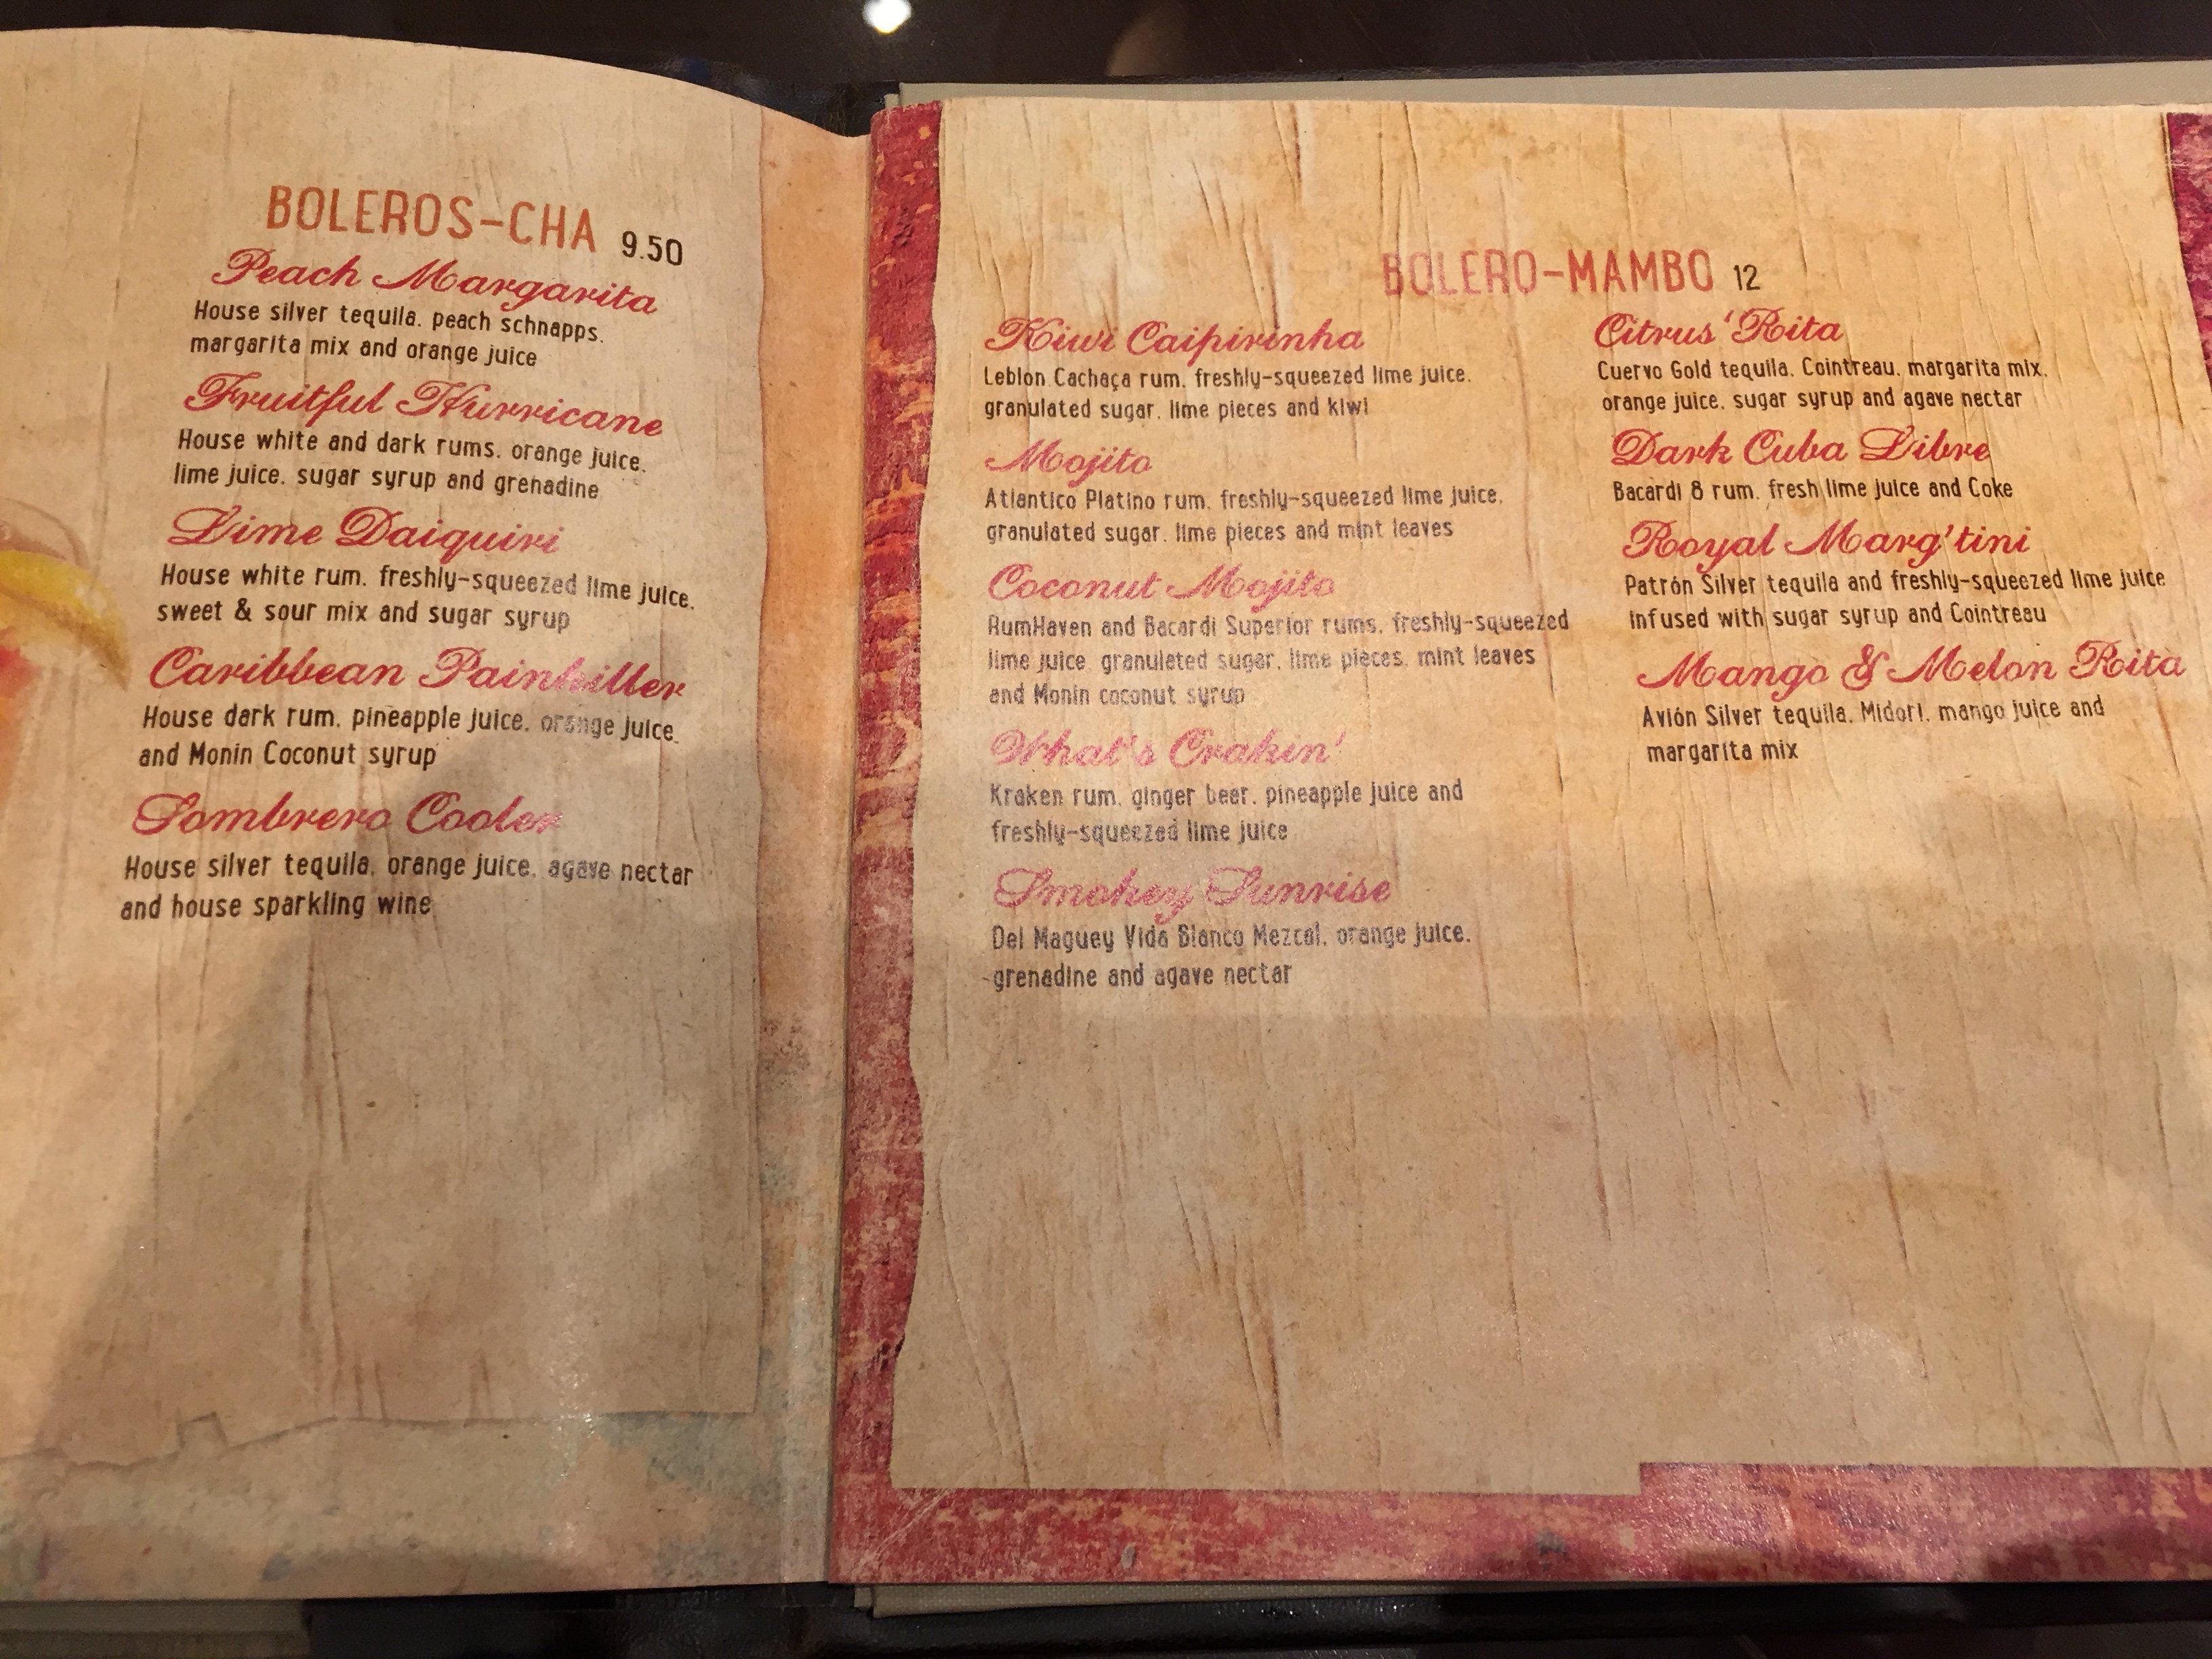 BOLEROS-CHA 9.50
Peach Margarita
House silver tequila, peach schnapps,
margarita mix and orange juice
Fruitful Hurricane
House white and dark rums, orange juice,
lime juice, sugar syrup and grenadine
Lime Daiquiri
House white rum, freshly-squeezed lime juice,
sweet & sour mix and sugar syrup
Caribbean Painkiller
House dark rum, pineapple juice, orange juice
and Monin Coconut syrup
Sombrero Cooler
House silver tequila, orange juice, agave nectar
and house sparkling wine
BOLERO-MAMBO 12
Kiwi Caipirinha
Leblon Cachaça rum, freshly-squeezed lime juice,
granulated sugar, lime pieces and kiwi
Mojito
Atlantico Platino rum, freshly-squeezed lime juice,
granulated sugar, lime pieces and mint leaves
Coconut Mojito
RumHaven and Bacardi Superior rums, freshly-squeezed
lime juice, granulated sugar, lime pieces, mint leaves
and Monin coconut syrup
What's Crakin'
Kraken rum, ginger beer, pineapple juice and
freshly-squeezed lime juice
Smokey Sunrise
Del Maguey Vida Blanco Mezcal, orange juice,
grenadine and agave nectar
Citrus 'Rita
Cuervo Gold tequila, Cointreau, margarita mix,
orange juice, sugar syrup and agave nectar
Dark Cuba Libre
Bacardi 8 rum, fresh lime juice and Coke
Royal Marg'tini
Patrón Silver tequila and freshly-squeezed lime juice
infused with sugar syrup and Cointreau
Mango & Melon Rita
Avión Silver tequila, Midori, mango juice and
margarita mix